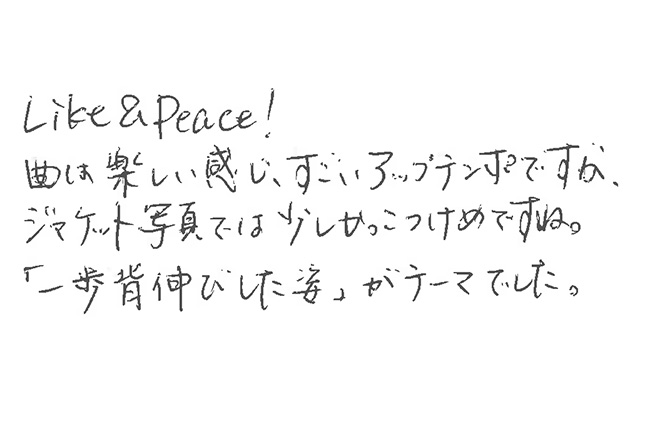 Like&Peace!
曲は楽しい感じ、すごいアップテンポですが、
ジャケット写真では少しかっこつけめですね。
「一歩背伸びした姿」がテーマでした。